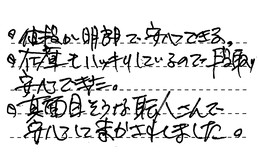 ・値段が明朗で安心できる。
・在庫もハッキリしているので段取り
安心できた。
・真面目そうな職人さんで
安心して まかされました。